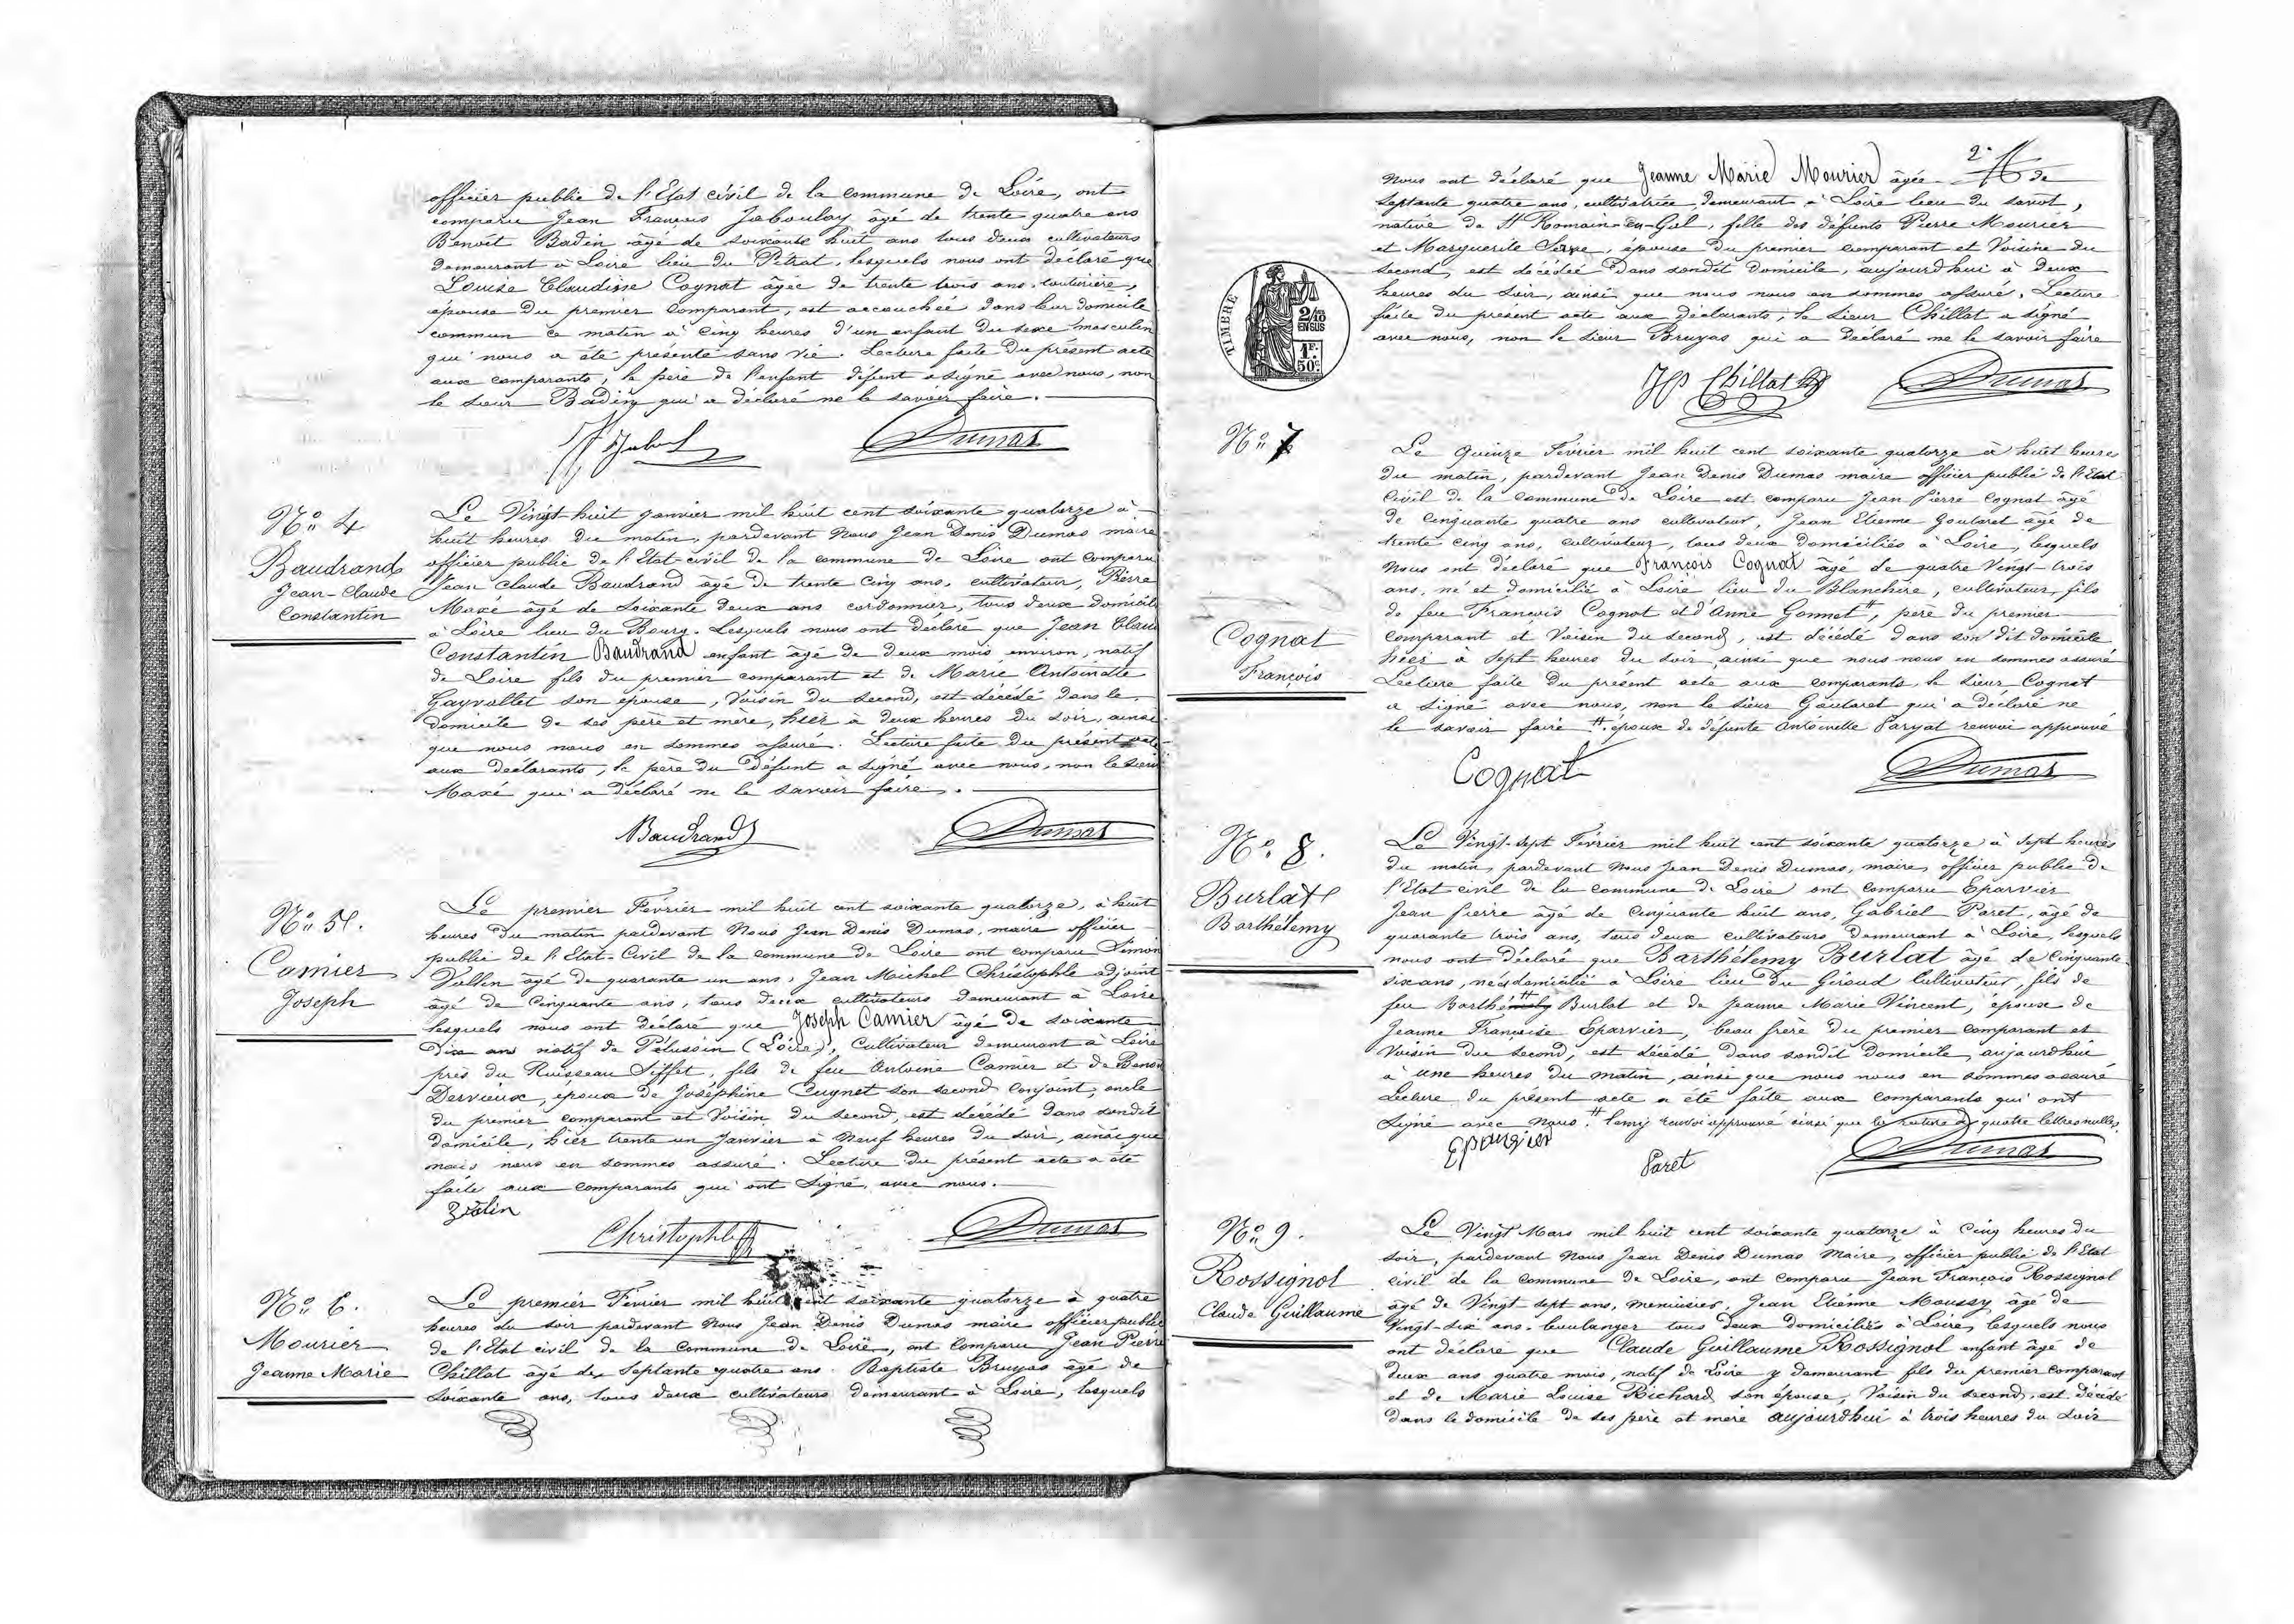 officier public de l'Etat civil de la commune de Loire, ont
comparu Jean François Jaboulay âgé de trente quatre ans
Benoît Badin âgé de soixante huit ans tous deux cultivateurs
demeurant à Loire lieu du Pétrat, lesquels nous ont déclaré que
Louise Claudine Cognat âgée de trente trois ans, couturière,
épouse du premier comparant, est accouchée dans leur domicile
commun ce matin à cinq heures d'un enfant du sexe masculin
qui nous a été présenté sans vie. Lecture faite du présent acte
aux comparants, le père de l'enfant défunt a signé avec nous, non
le sieur Badin qui a déclaré ne le savoir faire.
Dumas
N° 4
Baudrand
Jean-Claude
Constantin
Le Vingt-huit janvier mil huit cent soixante quatorze à
huit heures du matin, pardevant Nous Jean Denis Dumas maire
officier public de l'Etat-civil de la commune de Loire ont comparu
Jean Claude Baudrand âgé de trente cinq ans, cultivateur, Pierre
Maxé âgé de soixante deux ans cordonnier, tous deux domicilé
à Loire lieu du Bourg. Lesquels nous ont déclaré que Jean Claude
Constantin Baudrand enfant âgé de deux mois environ, natif
de Loire fils du premier comparant et de Marie Antoinette
Gayvallet son épouse, Voisin du second, est décédé dans le
domicile de ses père et mère, hier à deux heures du soir, ainsi
que nous nous en sommes assuré. Lecture faite du présent acte
aux déclarants, le père du défunt a signé avec nous, non le sieur
Maxé qui a déclaré ne le savoir faire.
Baudrand
Dumas
N° 5.
Camier
Joseph
Le premier Février mil huit cent soixante quatorze, à huit
heures du matin pardevant Nous Jean Denis Dumas, maire officier
public de l'Etat-Civil de la commune de Loire ont comparu Simon
Vallin âgé de quarante un ans, Jean Michel Christophle adjoint
âgé de cinquante ans, tous deux cultivateurs demeurant à Loire
lesquels nous ont déclaré que Joseph Camier âgé de soixante
dix ans natif de Pélussin (Loire), Cultivateur demeurant à Loire
près du Ruisseau Siffet, fils de feu Antoine Camier et de Benoi
Dervieux, époux de Joséphine Cugnet son second conjoint, oncle
du premier comparant et Voisin du second, est décédé dans sondit
domicile, hier trente un Janvier à neuf heures du soir, ainsi que
nous nous en sommes assuré. Lecture du présent acte a été
faite aux comparants qui ont signé avec nous.
Christophle
Dumas
N° 6.
Mourier
Jeanne Marie
Le premier Février mil huit cent soixante quatorze à quatre
heures du soir pardevant Nous Jean Denis Dumas maire officier public
de l'Etat civil de la Commune de Loire, ont comparu Jean Pierre
Chillat âgé de septante quatre ans. Baptiste Bruyas âgé de
soixante ans, tous deux cultivateurs demeurant à Loire, lesquels
2.
nous ont déclaré que Jeanne Marie Mourier âgée de
septante quatre ans, cultivatrice, demeurant à Loire lieu du savot,
native de St Romain-en-Gal, fille des défunts Pierre Mourier
et Marguerite Serve, épouse du premier comparant et Voisine du
second, est décédée dans sondit domicile, aujourd'hui à deux
heures du soir, ainsi que nous nous en sommes assuré. Lecture
faite du présent acte aux déclarants, le sieur Chillat a signé
avec nous, non le sieur Bruyas qui a déclaré ne le savoir faire
TIMBRE
2/10
EN SUS
1F.
50c.
JP Chillat
Dumas
N° 7
Cognat
François
Le quinze Février mil huit cent soixante quatorze à huit heures
du matin, pardevant Jean Denis Dumas maire officier public de l'Etat
Civil de la commune de Loire est comparu Jean Pierre Cognat âgé
de cinquante quatre ans cultivateur, Jean Etienne Goutaret âgé de
trente cinq ans, cultivateur, tous deux domiciliés à Loire, lesquels
nous ont déclaré que François Cognat âgé de quatre Vingt-trois
ans, né et domicilié à Loire lieu du Blanchire, cultivateur, fils
de feu François Cognat et d'Anne Gonnet #, père du premier
comparant et Voisin du second, est décédé dans son dit domicile
hier à sept heures du soir, ainsi que nous nous en sommes assuré
Lecture faite du présent acte aux comparants, le sieur Cognat
a signé avec nous, non le sieur Goutaret qui a déclaré ne
le savoir faire #. époux de défunte Antoinette Paryat renvoi approuvé
Cognat
Dumas
N° 8.
Burlat
Barthélemy
Le Vingt-sept Février mil huit cent soixante quatorze à sept heures
du matin, pardevant Nous Jean Denis Dumas, maire, officier public de
l'Etat-civil de la commune de Loire ont comparu Eparvier
Jean Pierre âgé de cinquante huit ans, Gabriel Paret, âgé de
quarante trois ans, tous deux cultivateurs demeurant à Loire, lesquels
nous ont déclaré que Barthélemy Burlat âgé de Cinquante
six ans, né et domicilié à Loire lieu du Giraud Cultivateur, fils de
feu Barthé # Burlat et de Jeanne Marie Vincent, époux de
Jeanne Françoise Eparvier, beau frère du premier comparant et
Voisin du second, est décédé dans sondit domicile, aujourd'hui
à une heures du matin, ainsi que nous nous en sommes assuré
Lecture du présent acte a été faite aux comparants qui ont
signé avec nous. # lemy renvoi approuvé ainsi que la rature de quatre lettres nulles.
Eparvier
Paret
Dumas
N° 9.
Rossignol
Claude Guillaume
Le Vingt Mars mil huit cent soixante quatorze à cinq heures du
soir, pardevant Nous Jean Denis Dumas Maire, officier public de l'Etat
civil de la Commune de Loire, ont comparu Jean François Rossignol
âgé de Vingt sept ans, menuisier, Jean Etienne Moussy âgé de
Vingt-six ans, boulanger tous deux domiciliés à Loire, lesquels nous
ont déclaré que Claude Guillaume Rossignol enfant âgé de
deux ans quatre mois, natif de Loire y demeurant fils du premier comparant
et de Marie Louise Richard son épouse, Voisin du second, est décédé
dans le domicile de ses père et mère aujourd'hui à trois heures du soir